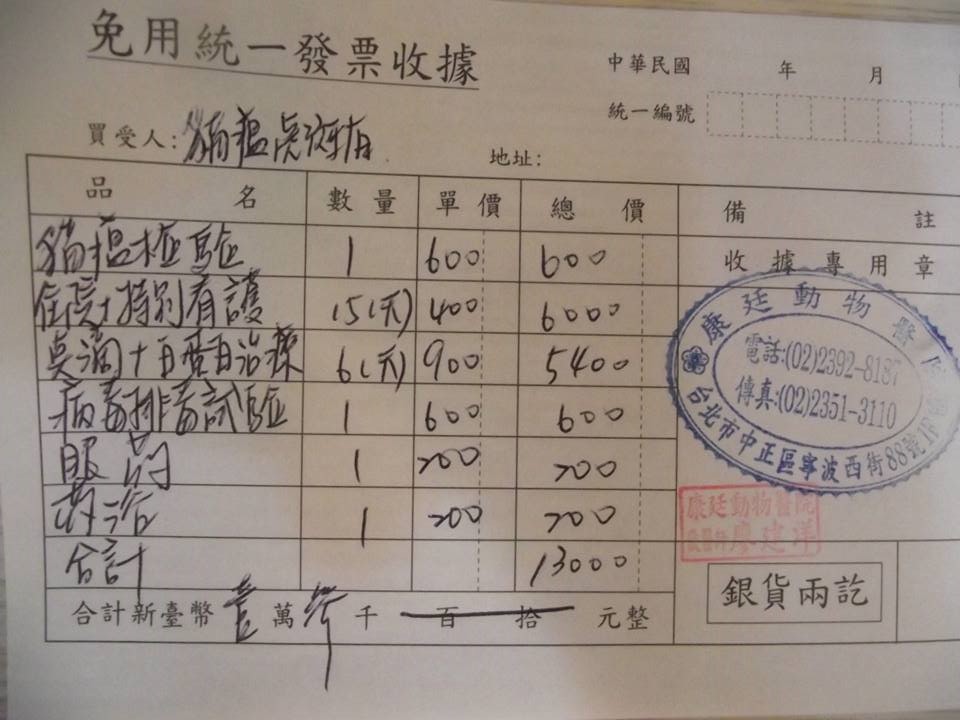 免用統一發票收據
中華民國 年 月
統一編號
買受人: 貓瘟虎斑
地址:
品名 數量 單價 總價 備註
貓瘟檢驗 1 600 600
收據專用章
住院+特別看護 15(天) 400 6000
點滴+白蛋白治療 6(天) 900 5400
病毒排毒試驗 1 600 600
眼药 1 200 200
药浴 1 200 200
合計 13000
合計新臺幣 壹萬 參千 百 拾 元整
康廷動物醫院
電話:(02)2392-8187
傳真:(02)2351-3110
台北市中正區寧波西街88號1F
康廷動物醫院
廖建洋
銀貨兩訖